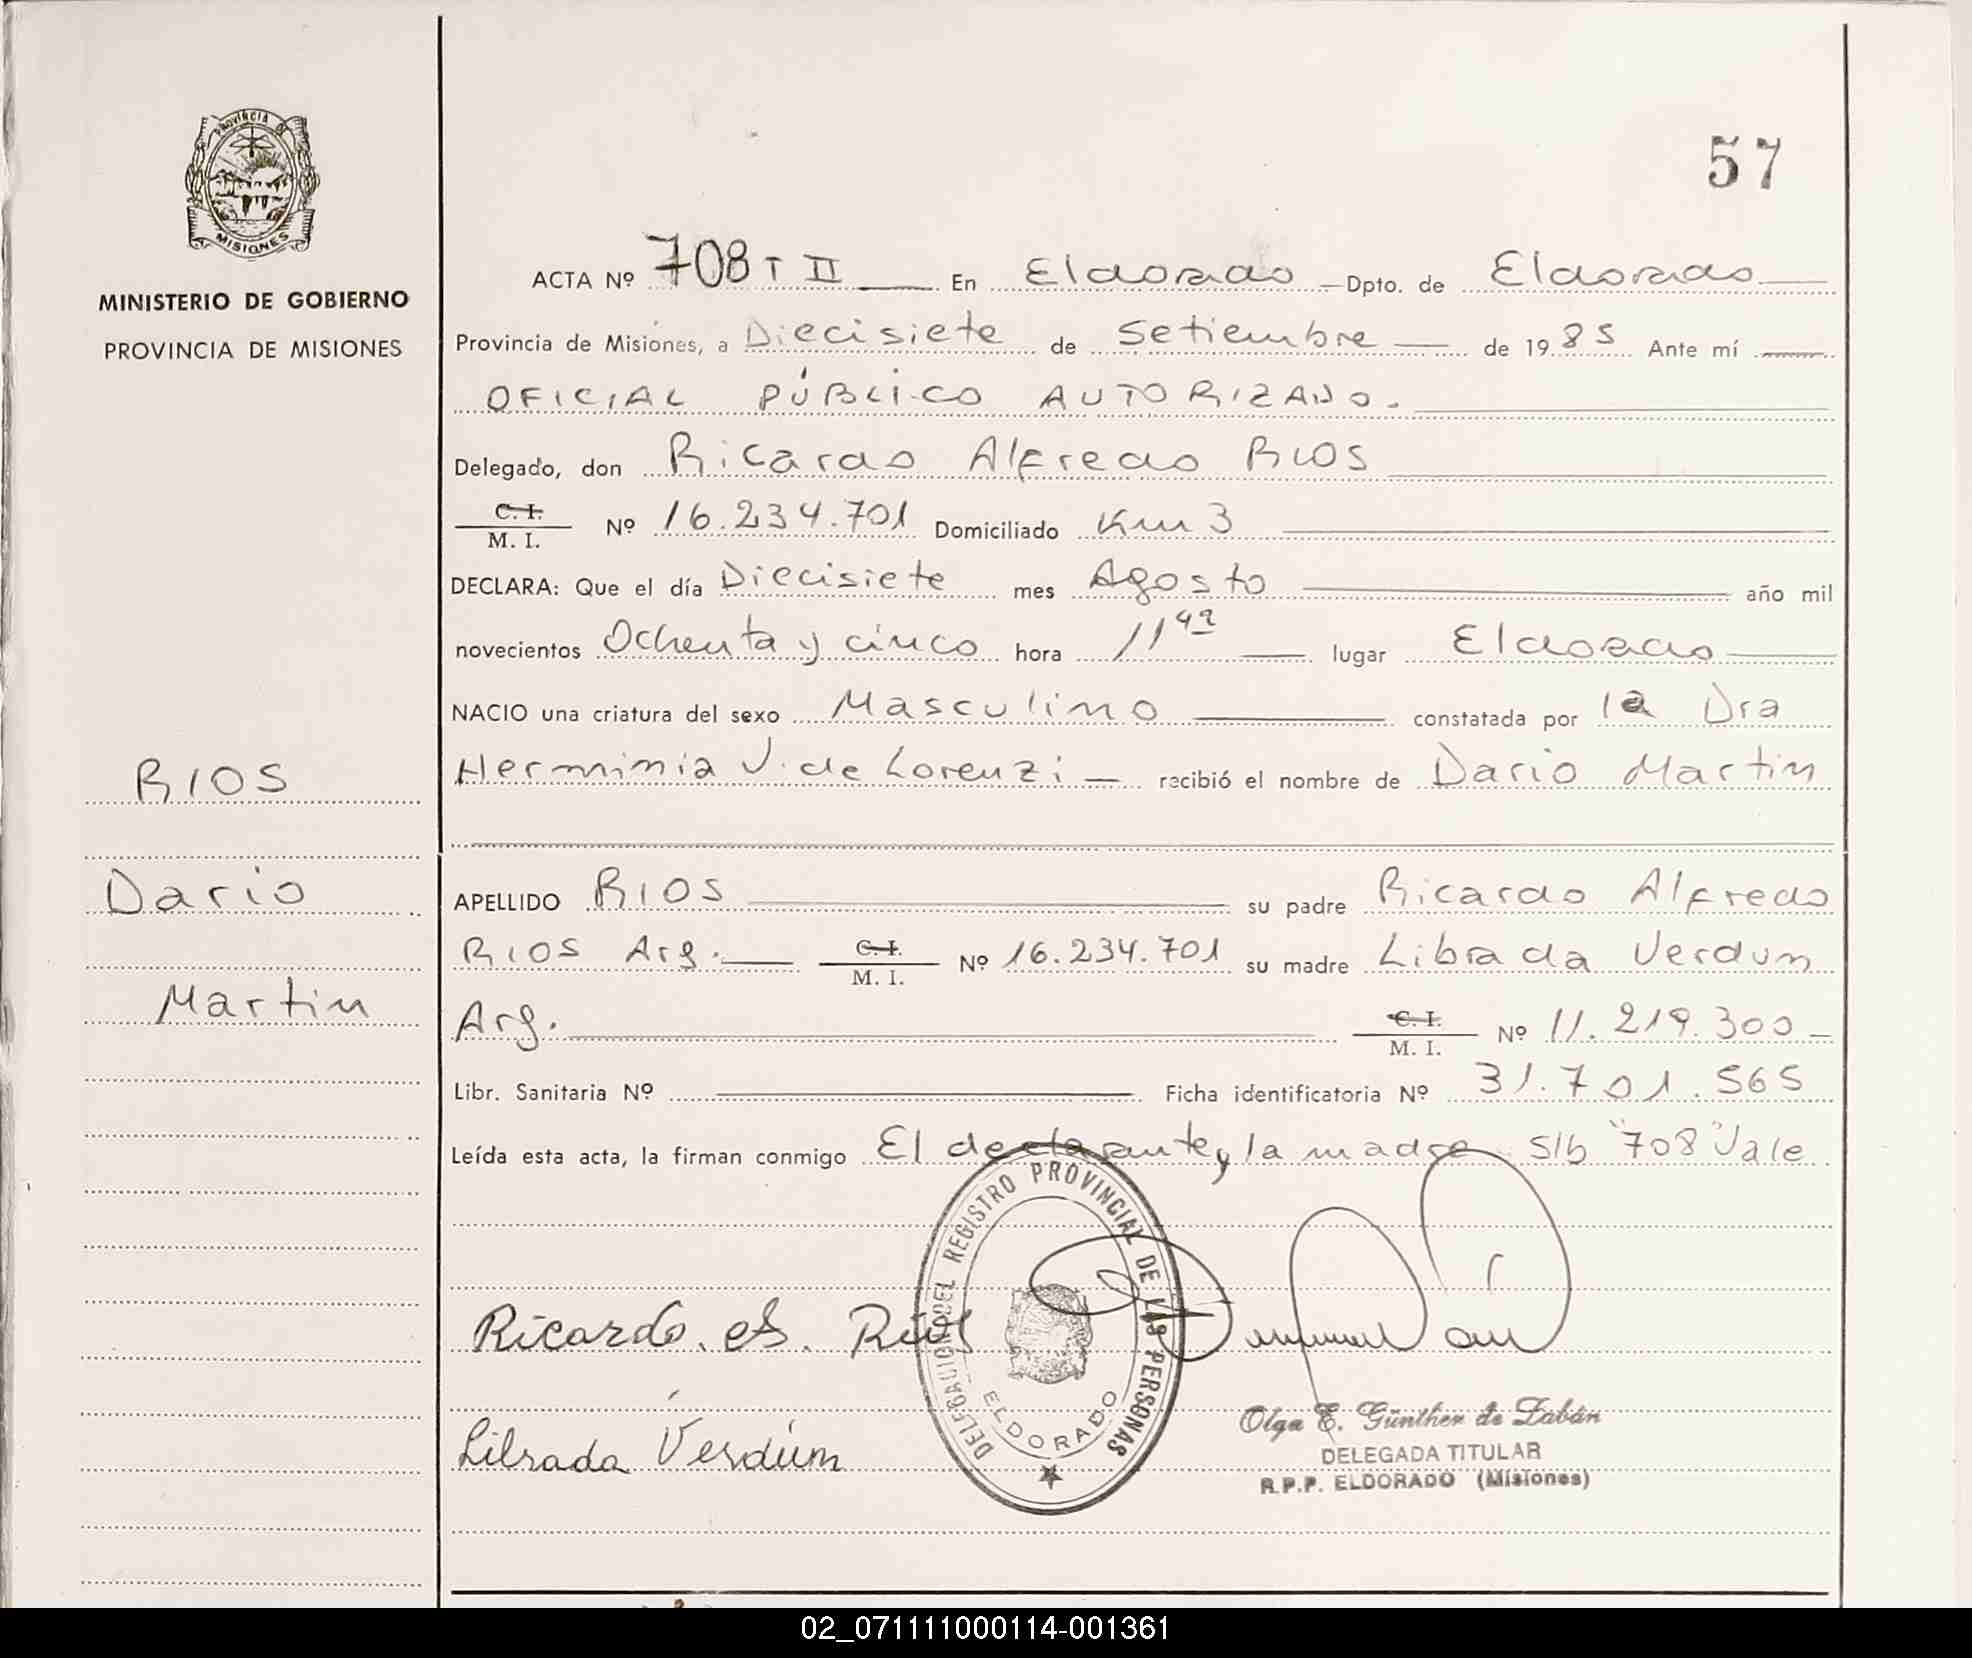 57
PROVINCIA DE
MISIONES
MINISTERIO DE GOBIERNO
PROVINCIA DE MISIONES
RIOS
Dario
Martin
ACTA Nº 708 T II En Eldorado Dpto. de Eldorado
Provincia de Misiones, a Diecisiete de Setiembre de 1985 Ante mí
OFICIAL PÚBLICO AUTORIZADO.
Delegado, don Ricardo Alfredo RIOS
C. I.
M. I. Nº 16.234.701 Domiciliado Km 3
DECLARA: Que el día Diecisiete mes Agosto año mil
novecientos Ochenta y cinco hora 11 42 lugar Eldorado
NACIO una criatura del sexo Masculino constatada por la Dra
Herminia V. de Lorenzi recibió el nombre de Dario Martin
APELLIDO RIOS su padre Ricardo Alfredo
RIOS Arg. C. I. M. I. Nº 16.234.701 su madre Librada Verdun
Arg. C. I. M. I. Nº 11.219.300
Libr. Sanitaria Nº Ficha identificatoria Nº 31.701.565
Leída esta acta, la firman conmigo El declarante y la madre S/b "708" Vale
DELEGACION DEL REGISTRO PROVINCIAL DE LAS PERSONAS
ELDORADO
Ricardo. A. Rios
Librada Verdún
Olga E. Günther de Zabán
DELEGADA TITULAR
R.P.P. ELDORADO (Misiones)
02_071111000114-001361